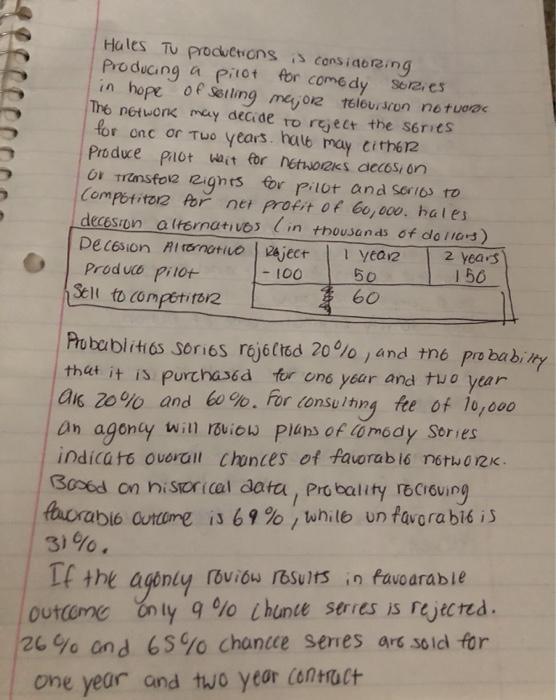 Hales TV productions is considoring
Producing a pilot for comedy sories
in hope of solling majorz tolouision notworc
Tho notwork may decide to roject the sories
for one or two years. hale may eitherz
Produce pilot wait for notworks decosion
or transfor Rights for pilot and sorios to
Compotitorz for net profit of 60,000. hales
decosion alternativos (in thousands of dollars)
Decosion Alternativo Roject 1 yearz 2 years
Produco pilot -100 50 150
Sell to compotitorz 60
Probablitios sorios rojoctod 20%, and tho probabilty
that it is purchasod for ono yoar and two year
are 20% and 60%. For consulting fee of 10,000
an agoncy will roviow plans of comody sorios
indicato ovorall chances of favorablo notworzk.
Basod on historical data, probality rocioving
favorablo outcome is 69%, whilo unfavorablo is
31%.
If the agoncy roviow rosults in favoarable
outcome only 9% chance serres is rejected.
26% and 65% chancce serres are sold for
one year and two year contract